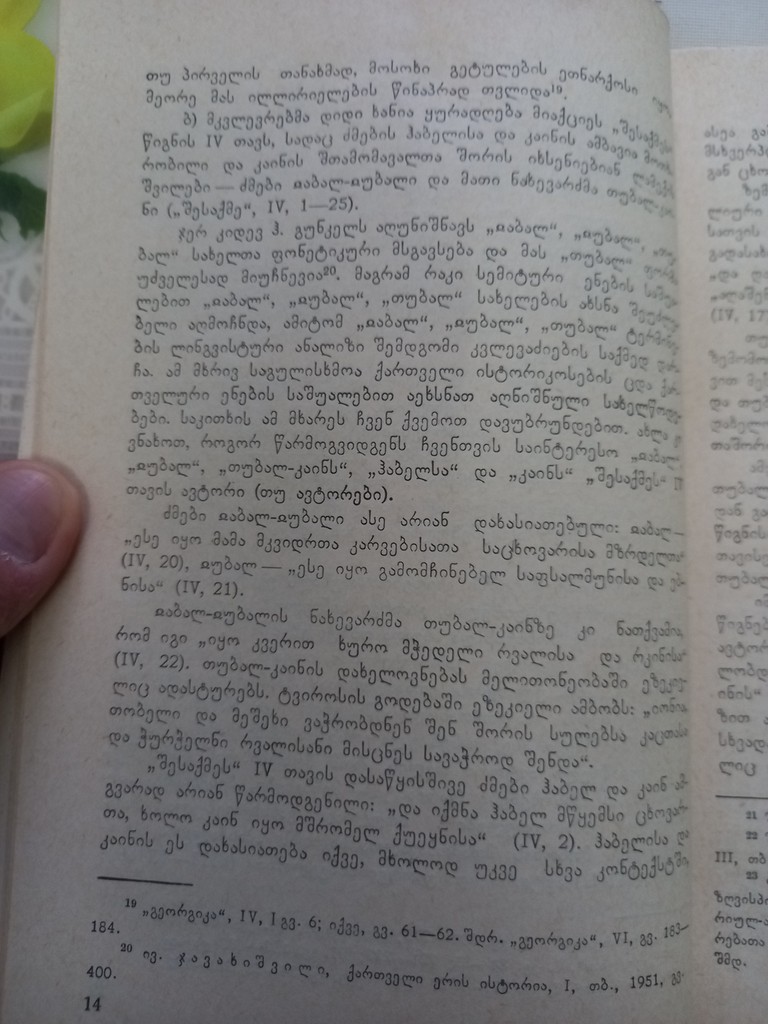 თუ პირველის თანახმად, მოსოხი გეტულების ეთნარქოსი
მეორე მას ილლირიელების წინაპრად თვლიდა¹⁹.
ბ) მკვლევრებმა დიდი ხანია ყურადღება მიაქციეს „შესაქმეს
წიგნის IV თავს, სადაც ძმების ჰაბელისა და კაინის ამბავია
რობილი და კაინის შთამომავალთა შორის იხსენიებიან ლამექის
შვილები — ძმები ჲაბალ-ჲუბალი და მათი ნახევარძმა თუბალ-
ნი („შესაქმე“, IV, 1—25).
ჯერ კიდევ ჰ. გუნკელს აღუნიშნავს „ჲაბალ“, „ჲუბალ“,
ბალ“ სახელთა ფონეტიკური მსგავსება და მას „თუბალ“
უძველესად მიუჩნევია²⁰. მაგრამ რაკი სემიტური ენების
ლებით „ჲაბალ“, „ჲუბალ“, „თუბალ“ სახელების ახსნა
ბელი აღმოჩნდა, ამიტომ „ჲაბალ“, „ჲუბალ“, „თუბალ“
ბის ლინგვისტური ანალიზი შემდგომი კვლევაძიების საქმედ
ჩა. ამ მხრივ საგულისხმოა ქართველი ისტორიკოსების ცდა
თველური ენების საშუალებით აეხსნათ აღნიშნული
ბები. საკითხის ამ მხარეს ჩვენ ქვემოთ დავუბრუნდებით. ახლა
ვნახოთ, როგორ წარმოგვიდგენს ჩვენთვის საინტერესო „ჲაბალ
„ჲუბალ“, „თუბალ-კაინს“, „ჰაბელსა“ და „კაინს“ „შესაქმეს“ IV
თავის ავტორი (თუ ავტორები).
ძმები ჲაბალ-ჲუბალი ასე არიან დახასიათებული: ჲაბალ—
„ესე იყო მამა მკვიდრთა კარვებისათა საცხოვარისა მზრდელთა“
(IV, 20), ჲუბალ — „ესე იყო გამომჩინებელ საფსალმუნისა და ებ-
ნისა“ (IV, 21).
ჲაბალ-ჲუბალის ნახევარძმა თუბალ-კაინზე კი ნათქვამია,
რომ იგი „იყო კვერით ხურო მჭედელი რვალისა და რკინისა“
(IV, 22). თუბალ-კაინის დახელოვნებას მელითონეობაში ეზეკიე-
ლიც ადასტურებს. ტვიროსის გოდებაში ეზეკიელი ამბობს: „იონია,
თობელი და მეშეხი ვაჭრობდნენ შენ შორის სულებსა კაცთასა
და ჭურჭელნი რვალისანი მისცნეს სავაჭროდ შენდა“.
„შესაქმეს“ IV თავის დასაწყისშივე ძმები ჰაბელ და კაინ ამ-
გვარად არიან წარმოდგენილი: „და იქმნა ჰაბელ მწყემსი ცხოვარ-
თა, ხოლო კაინ იყო მშრომელ ქუეყნისა“ (IV, 2). ჰაბელისა და
კაინის ეს დახასიათება იქვე, მხოლოდ უკვე სხვა კონტექსტში,
¹⁹ „გეორგიკა“, IV, I გვ. 6; იქვე, გვ. 61—62. შდრ. „გეორგიკა“, VI, გვ. 183—
184.
²⁰ ივ. ჯავახიშვილი, ქართველი ერის ისტორია, I, თბ., 1951, გვ.
400.
14
ასეა
გან
ლიური
სათვის
„და
(IV, 17
ვით
თუბალ
დან
წიგნის
ინის“
ზით
ლიც
21
22
III, თბ.
23
შმდ.